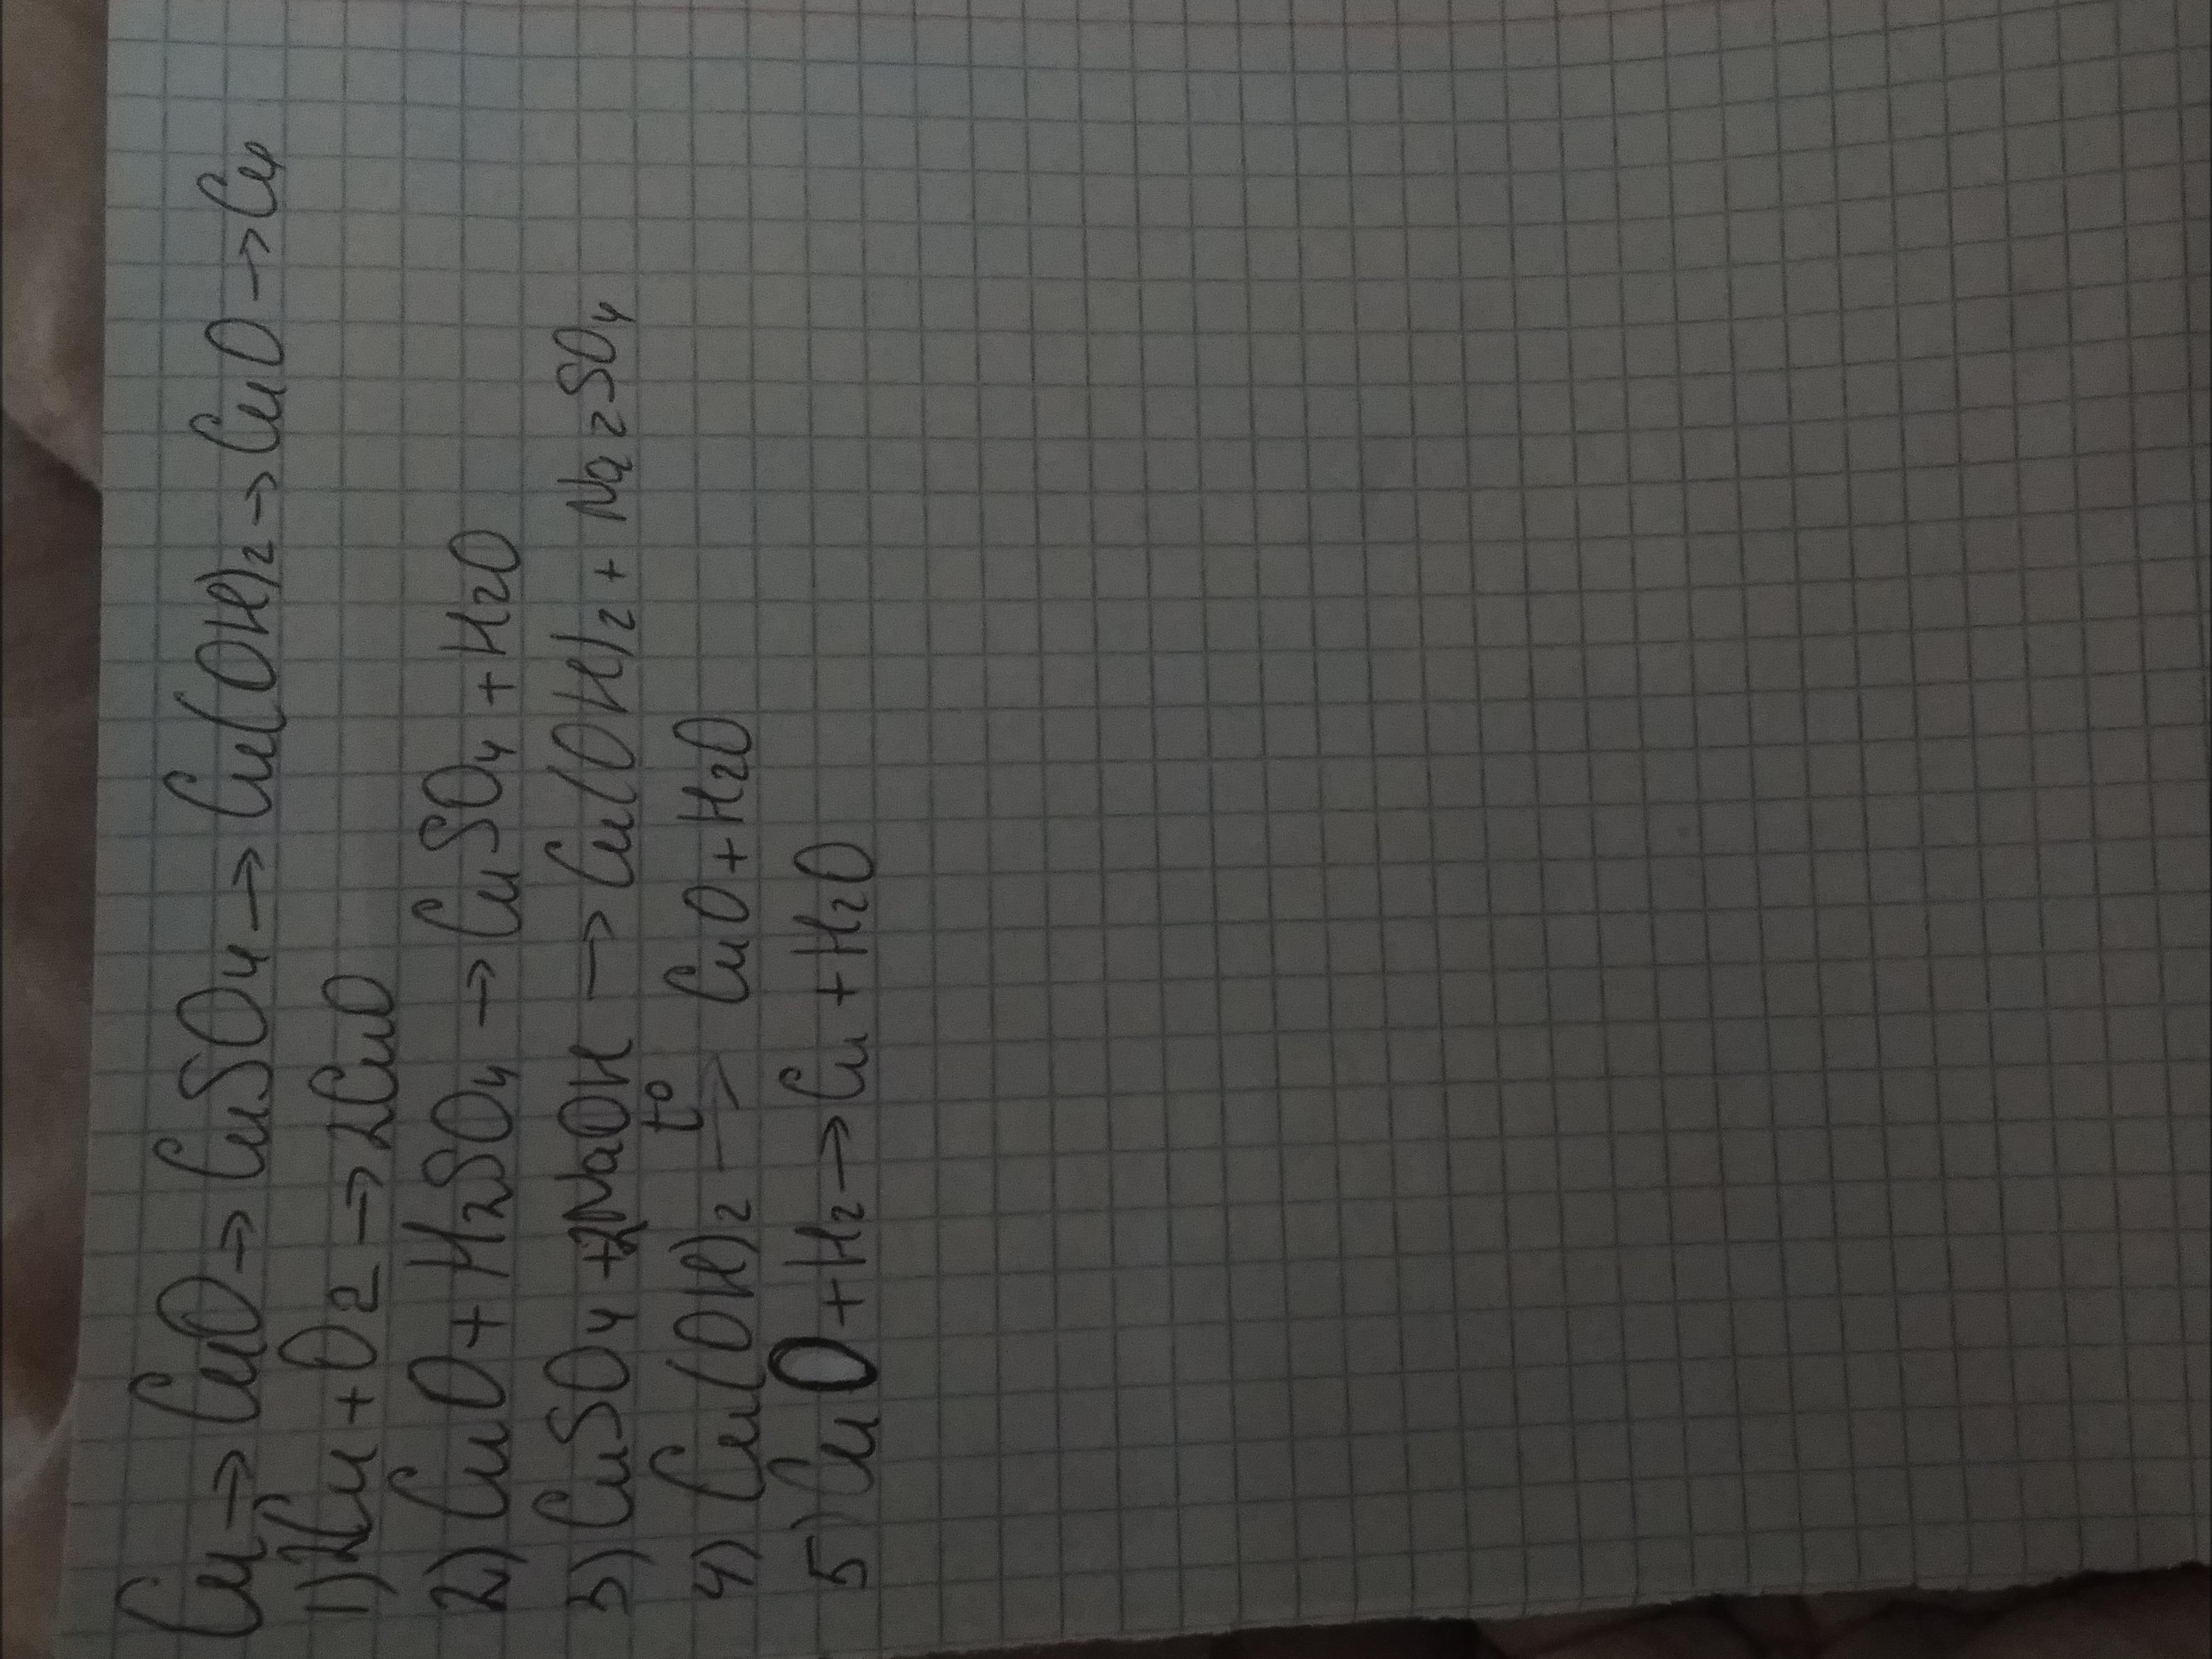 Cu→CuO→CuSO4→Cu(OH)2→CuO→Cu
1) 2Cu+O2→2CuO
2) CuO+H2SO4→CuSO4+H2O
3) CuSO4+2NaOH→Cu(OH)2+Na2SO4
4) Cu(OH)2 t°→ CuO+H2O
5) CuO+H2→Cu+H2O